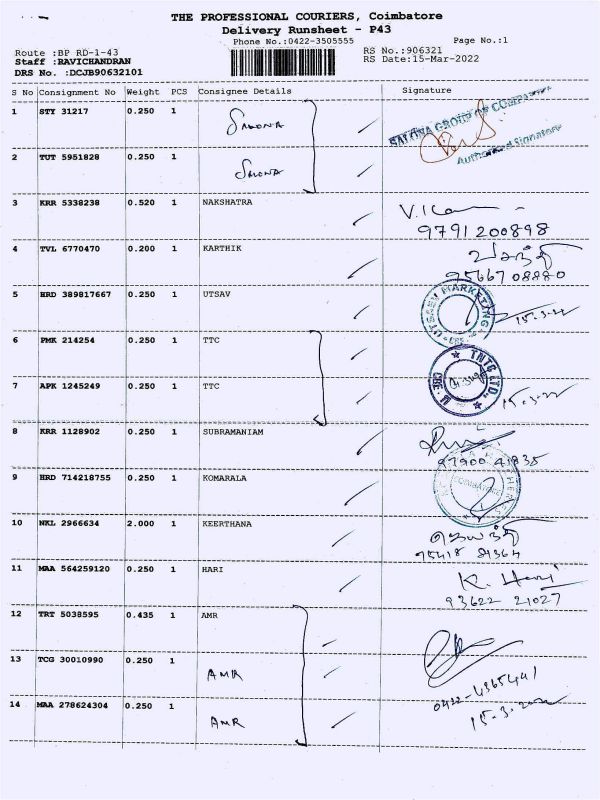 THE PROFESSIONAL COURIERS, Coimbatore
Delivery Runsheet - P43
Phone No.:0422-3505555 Page No.:1
Route :BP RD-1-43 RS No.:906321
Staff :RAVICHANDRAN RS Date:15-Mar-2022
DRS No. :DCJB90632101
S No Consignment No Weight PCS Consignee Details Signature
1 STY 31217 0.250 1 Salona SALONA GROUP OF COMPANIES
Authorised Signatory
2 TUT 5951828 0.250 1 Salona
3 KRR 5338238 0.520 1 NAKSHATRA
9791200898
4 TVL 6770470 0.200 1 KARTHIK
9566708880
5 HRD 389817667 0.250 1 UTSAV 15-3-22
6 PMK 214254 0.250 1 TTC TNTC LTD., CBE
7 APK 1245249 0.250 1 TTC 15-3-22
8 KRR 1128902 0.250 1 SUBRAMANIAM
9790041835
9 HRD 714218755 0.250 1 KOMARALA COIMBATORE
10 NKL 2966634 2.000 1 KEERTHANA
11 MAA 564259120 0.250 1 HARI K. Hari
93622 21027
12 TRT 5038595 0.435 1 AMR
13 TCG 30010990 0.250 1 AMR
0422-4365441
14 MAA 278624304 0.250 1 AMR 15-3-22